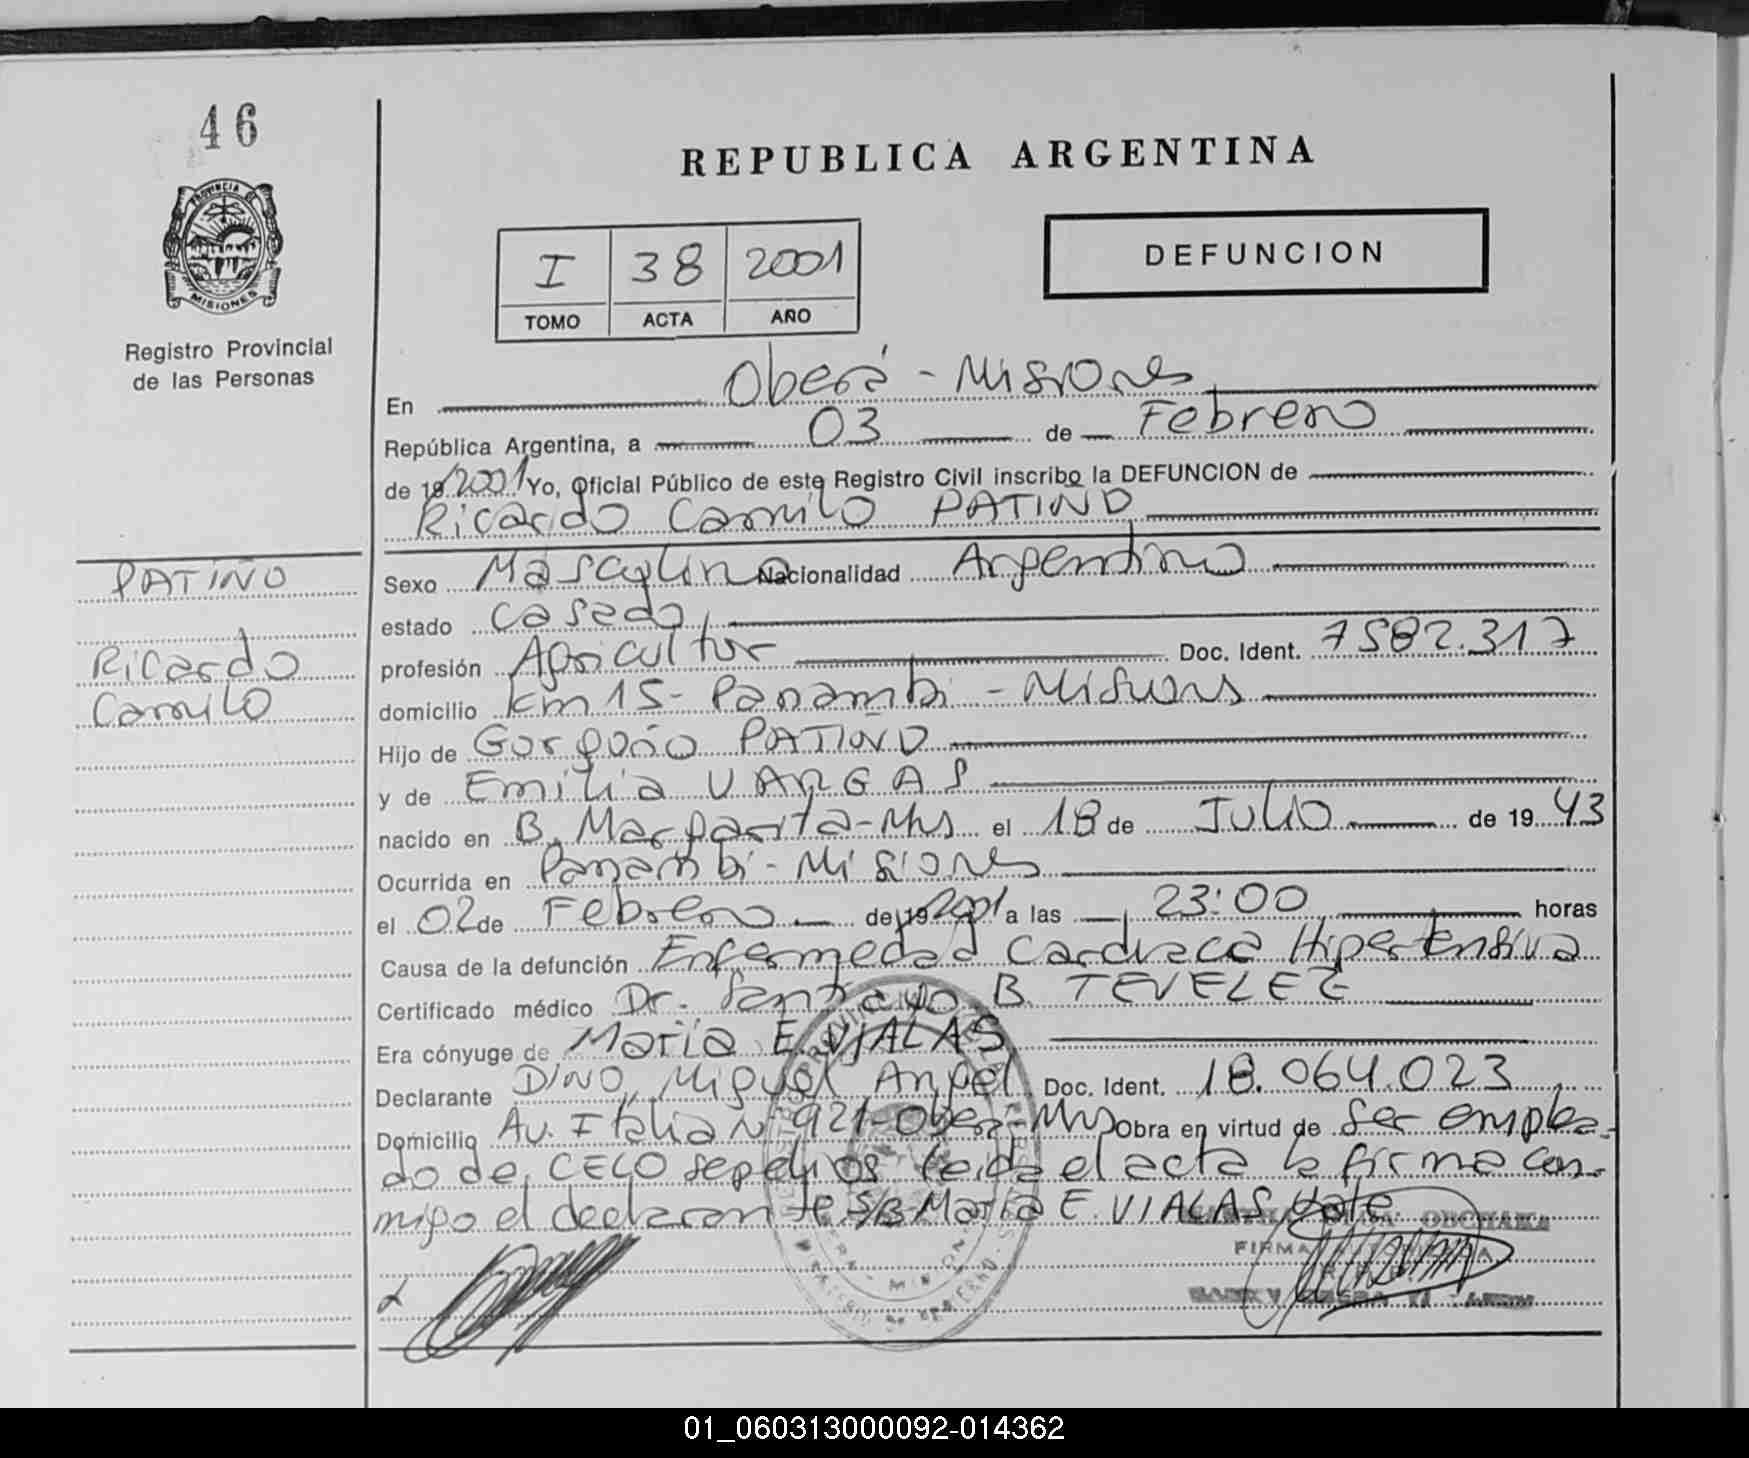 46
PROVINCIA DE
MISIONES
Registro Provincial
de las Personas
PATIÑO
Ricardo
Camilo
REPUBLICA ARGENTINA
I 38 2001
TOMO ACTA AÑO
DEFUNCION
En Oberá - Misiones
República Argentina, a 03 de Febrero
de 19 2001 Yo, Oficial Público de este Registro Civil inscribo la DEFUNCION de
Ricardo Camilo PATIÑO
Sexo Masculino Nacionalidad Argentino
estado casado
profesión Agricultor Doc. Ident. 7582.317
domicilio Km 15 - Panambi - Misiones
Hijo de PATIÑO
y de Emilia VARGAS
nacido en B. Margarita - Mns el 18 de Julio de 19 43
Ocurrida en Panambi - Misiones
el 02 de Febrero de 19 2001 a las 23:00 horas
Causa de la defunción Enfermedad Cardiaca Hipertensiva
Certificado médico Dr. Santiago B. TEVELEZ
Era cónyuge de Maria E. VIALAS
Declarante DINO, Miguel Angel Doc. Ident. 18.064.023
Domicilio Av. Italia N 921 - Oberá - Mns Obra en virtud de Ser emplea-
do de CELO sepelios leida el acta la firma con-
migo el declarante S/B Maria E. VIALAS Vale
FIRMA AUTORIZADA
01_060313000092-014362